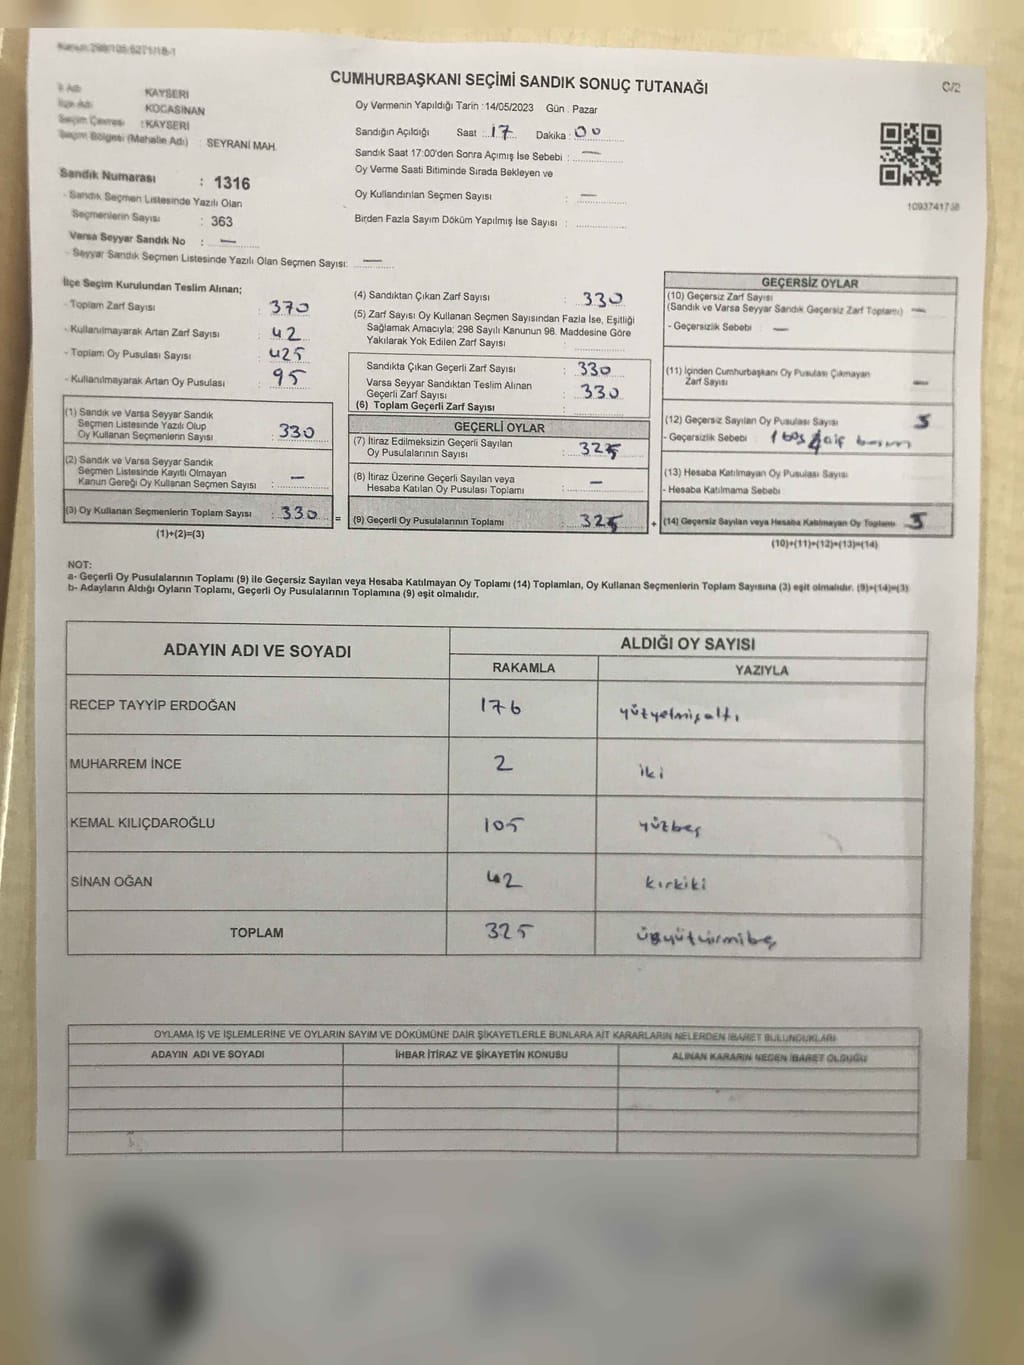 Kanun:298/105/6271/18-1
CUMHURBAŞKANI SEÇİMİ SANDIK SONUÇ TUTANAĞI
C/2
İl Adı KAYSERİ
İlçe Adı KOCASİNAN
Seçim Çevresi : KAYSERİ
Seçim Bölgesi (Mahalle Adı) : SEYRANİ MAH.
Oy Vermenin Yapıldığı Tarih :14/05/2023 Gün . Pazar
Sandığın Açıldığı Saat : 17 Dakika : 00
Sandık Saat 17:00'den Sonra Açımış İse Sebebi : —
Oy Verme Saati Bitiminde Sırada Bekleyen ve
Oy Kullandırılan Seçmen Sayısı : —
Birden Fazla Sayım Döküm Yapılmış İse Sayısı :
1093741758
Sandık Numarası : 1316
- Sandık Seçmen Listesinde Yazılı Olan
Seçmenlerin Sayısı : 363
Varsa Seyyar Sandık No : —
- Seyyar Sandık Seçmen Listesinde Yazılı Olan Seçmen Sayısı: —
İlçe Seçim Kurulundan Teslim Alınan;
- Toplam Zarf Sayısı : 370
- Kullanılmayarak Artan Zarf Sayısı : 42
- Toplam Oy Pusulası Sayısı : 425
- Kullanılmayarak Artan Oy Pusulası : 95
(1) Sandık ve Varsa Seyyar Sandık
Seçmen Listesinde Yazılı Olup
Oy Kullanan Seçmenlerin Sayısı : 330
(2) Sandık ve Varsa Seyyar Sandık
Seçmen Listesinde Kayıtlı Olmayan
Kanun Gereği Oy Kullanan Seçmen Sayısı : —
(3) Oy Kullanan Seçmenlerin Toplam Sayısı : 330 =
(1)+(2)=(3)
(4) Sandıktan Çıkan Zarf Sayısı : 330
(5) Zarf Sayısı Oy Kullanan Seçmen Sayısından Fazla İse, Eşitliği
Sağlamak Amacıyla; 298 Sayılı Kanunun 98. Maddesine Göre
Yakılarak Yok Edilen Zarf Sayısı :
Sandıkta Çıkan Geçerli Zarf Sayısı : 330
Varsa Seyyar Sandıktan Teslim Alınan
Geçerli Zarf Sayısı : 330
(6) Toplam Geçerli Zarf Sayısı :
GEÇERLİ OYLAR
(7) İtiraz Edilmeksizin Geçerli Sayılan
Oy Pusulalarının Sayısı : 325
(8) İtiraz Üzerine Geçerli Sayılan veya
Hesaba Katılan Oy Pusulası Toplamı : —
(9) Geçerli Oy Pusulalarının Toplamı : 325 +
GEÇERSİZ OYLAR
(10) Geçersiz Zarf Sayısı
(Sandık ve Varsa Seyyar Sandık Geçersiz Zarf Toplamı) —
- Geçersizlik Sebebi : —
(11) İçinden Cumhurbaşkanı Oy Pusulası Çıkmayan
Zarf Sayısı —
(12) Geçersiz Sayılan Oy Pusulası Sayısı 5
- Geçersizlik Sebebi : 1 boş 4
(13) Hesaba Katılmayan Oy Pusulası Sayısı
- Hesaba Katılmama Sebebi
(14) Geçersiz Sayılan veya Hesaba Katılmayan Oy Toplamı 5
(10)+(11)+(12)+(13)=(14)
NOT:
a- Geçerli Oy Pusulalarının Toplamı (9) ile Geçersiz Sayılan veya Hesaba Katılmayan Oy Toplamı (14) Toplamları, Oy Kullanan Seçmenlerin Toplam Sayısına (3) eşit olmalıdır. (9)+(14)=(3)
b- Adayların Aldığı Oyların Toplamı, Geçerli Oy Pusulalarının Toplamına (9) eşit olmalıdır.
ADAYIN ADI VE SOYADI
ALDIĞI OY SAYISI
RAKAMLA YAZIYLA
RECEP TAYYİP ERDOĞAN 176 yüzyetmişaltı
MUHARREM İNCE 2 iki
KEMAL KILIÇDAROĞLU 105 yüzbeş
SİNAN OĞAN 42 kırkiki
TOPLAM 325 üçyüzyirmibeş
OYLAMA İŞ VE İŞLEMLERİNE VE OYLARIN SAYIM VE DÖKÜMÜNE DAİR ŞİKAYETLERLE BUNLARA AİT KARARLARIN NELERDEN İBARET BULUNDUKLARI
ADAYIN ADI VE SOYADI İHBAR İTİRAZ VE ŞİKAYETİN KONUSU ALINAN KARARIN NEDEN İBARET OLDUĞU